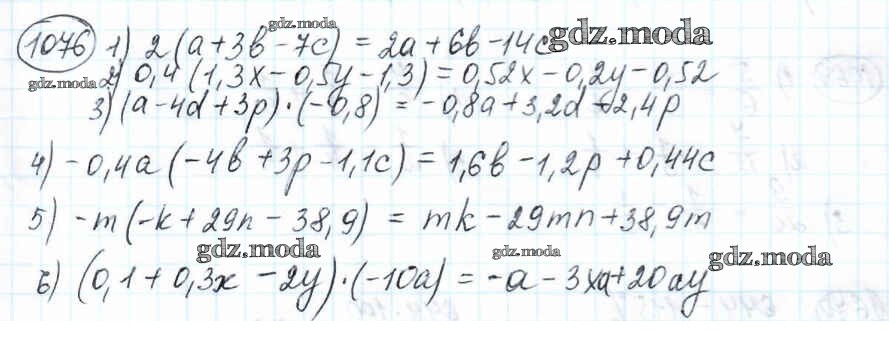 gdz.moda
1076 1) 2(a+3b-7c) = 2a+6b-14c gdz.moda
gdz.moda 2) 0,4(1,3x-0,5y-1,3) = 0,52x-0,2y-0,52
3) (a-4d+3p)·(-0,8) = -0,8a+3,2d-2,4p
4) -0,4a(-4b+3p-1,1c) = 1,6b-1,2p+0,44c
5) -m(-k+29n-38,9) = mk-29mn+38,9m
gdz.moda gdz.moda gdz.moda
6) (0,1+0,3x-2y)·(-10a) = -a-3xa+20ay